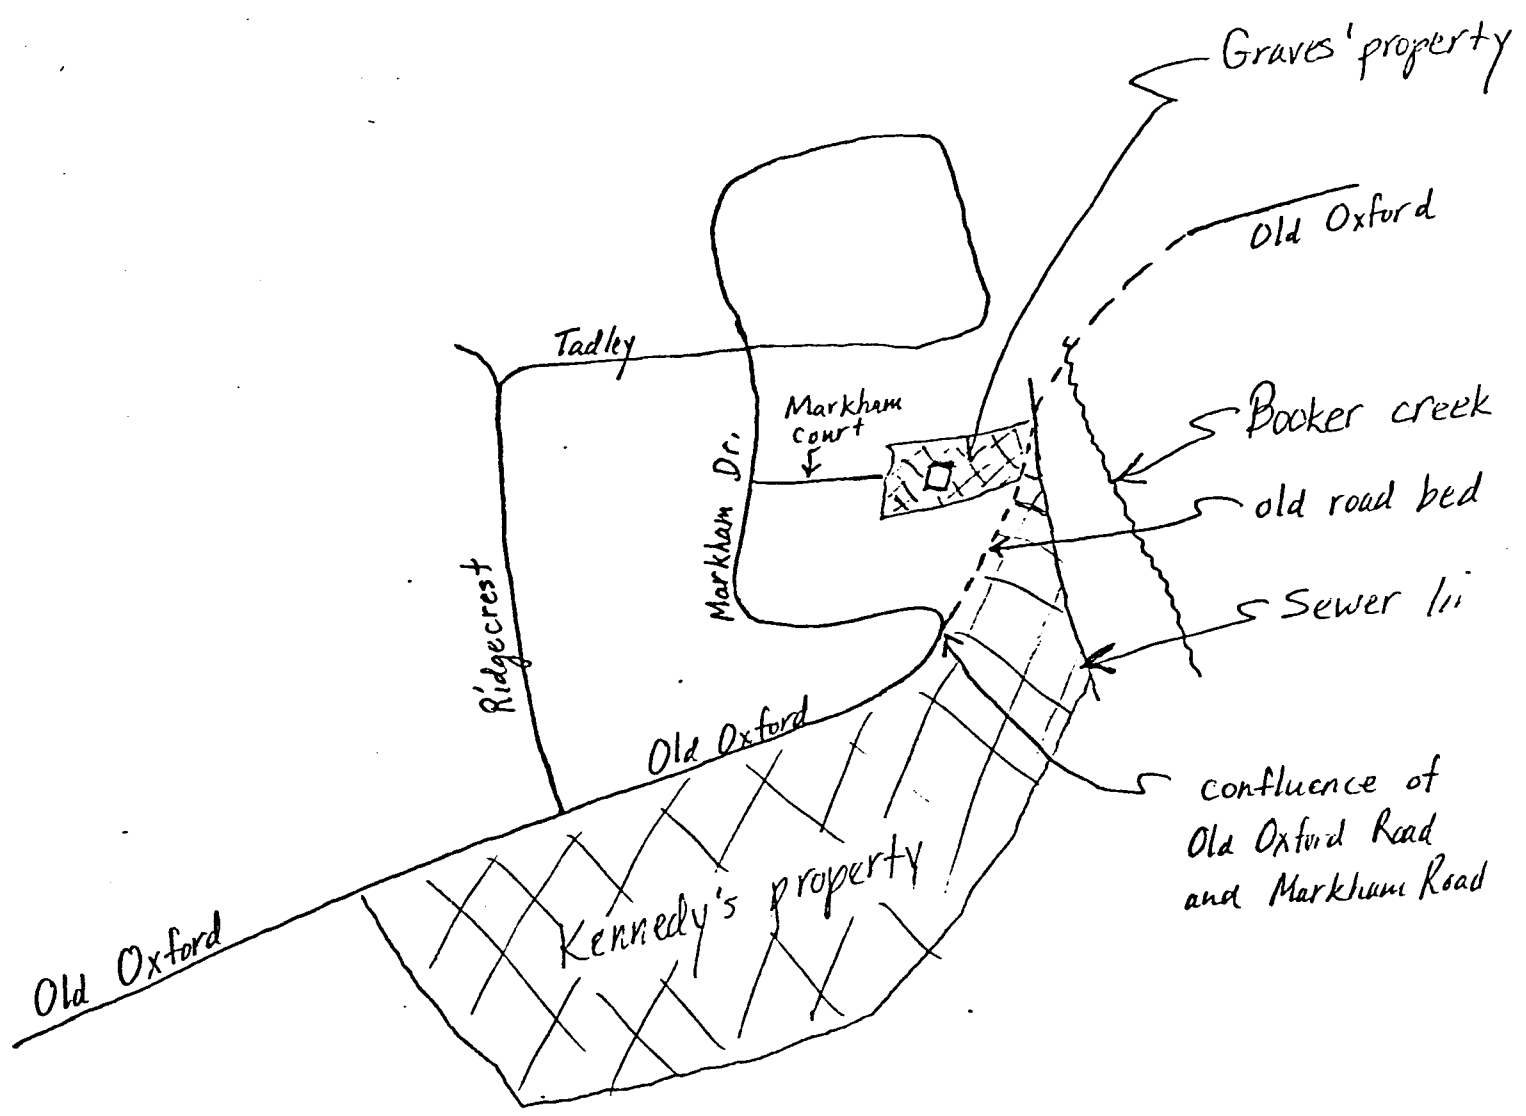 Graves' property
Old Oxford
Tadley
Markham
court
Booker creek
Markham Dr.
old road bed
Ridgecrest
Sewer
Old Oxford
confluence of
Old Oxford Road
and Markham Road
Kennedy's property
Old Oxford